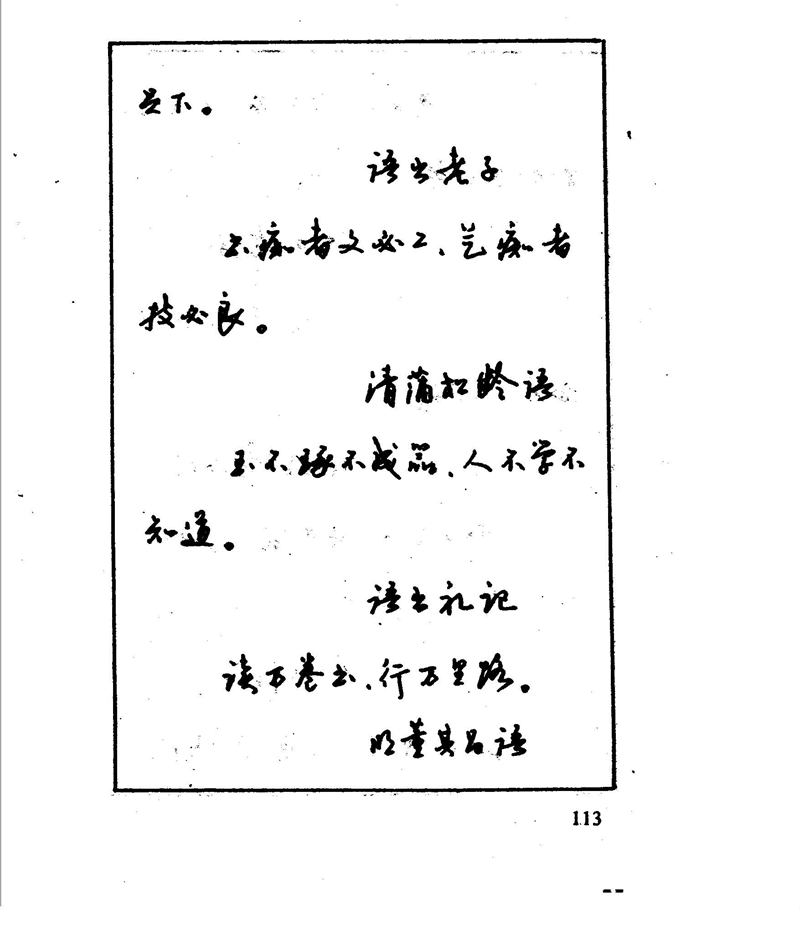 足下。
语出老子
书痴者文必工、艺痴者
技必良。
清蒲松龄语
玉不琢不成器、人不学不
知道。
语出礼记
读万卷书、行万里路。
明董其昌语
113